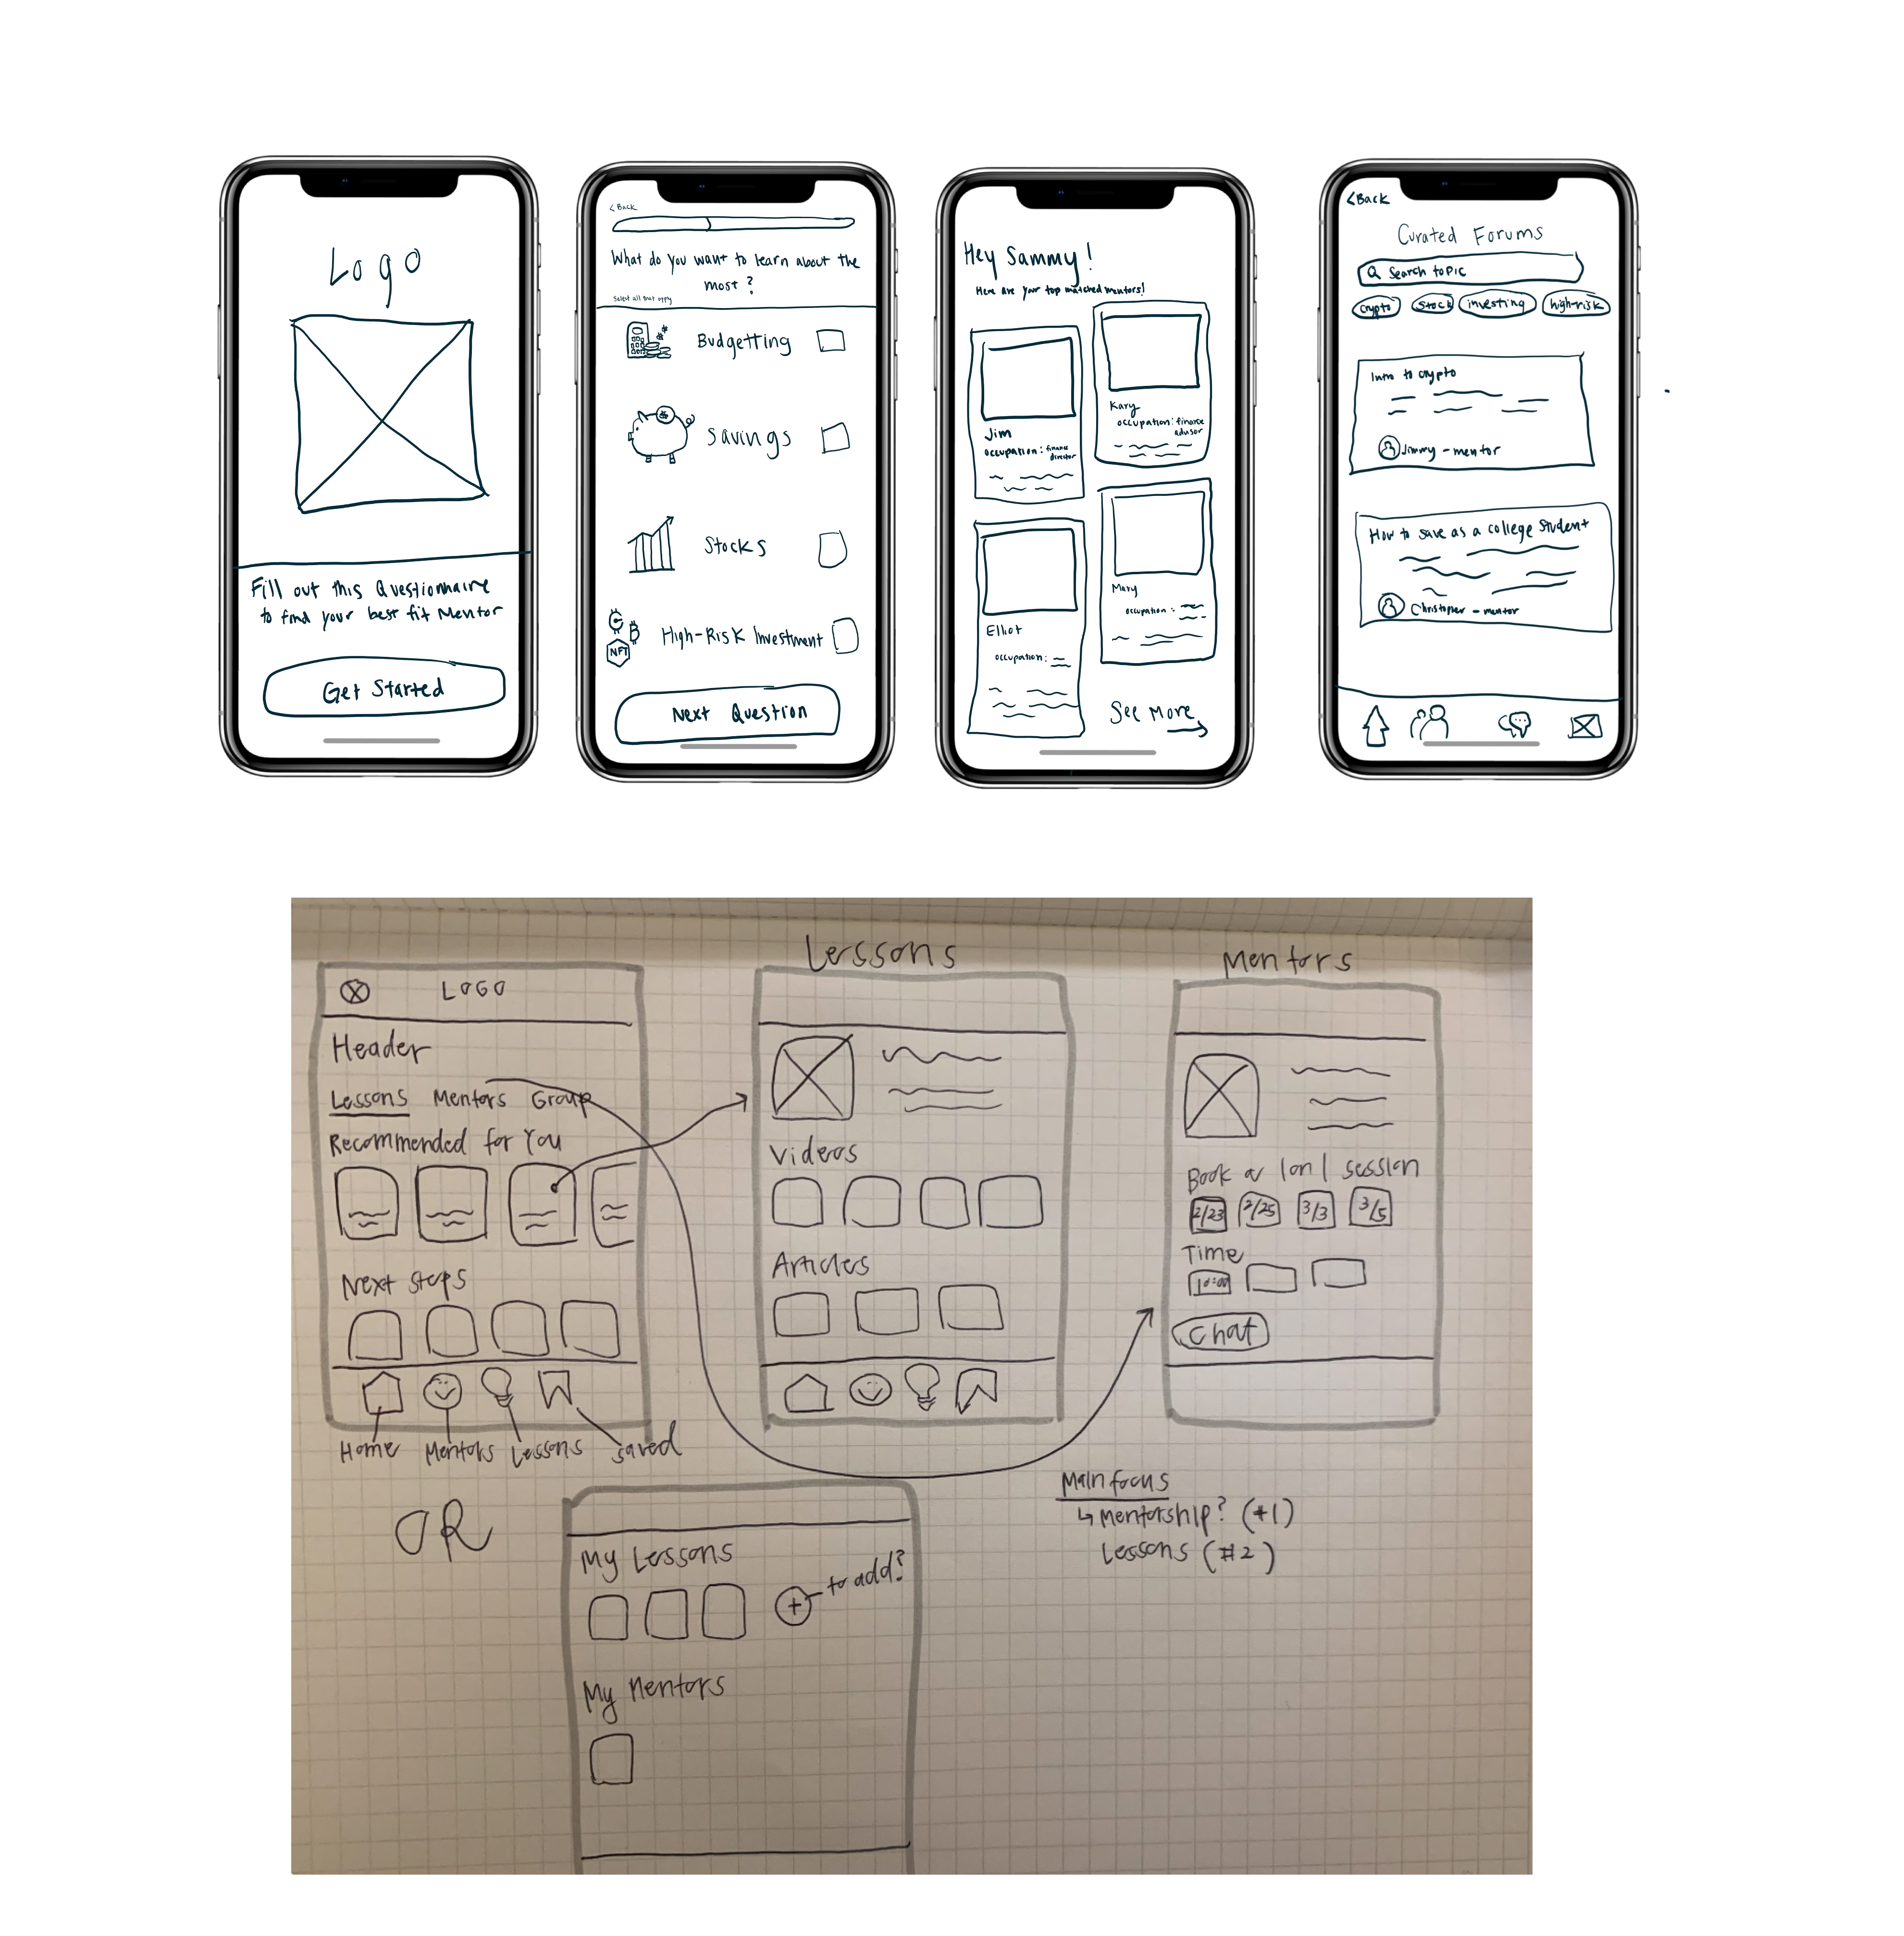 Logo
Fill out this Questionnaire
to find your best fit Mentor
Get Started
< Back
What do you want to learn about the
most?
Select all that apply
Budgetting
Savings
Stocks
High-Risk Investment
NFT
Next Question
Hey Sammy!
Here are your top matched mentors!
Jim
occupation: finance
director
Kary
occupation: finance
advisor
Elliot
occupation:
Mary
occupation:
See More
<Back
Curated Forums
Search topic
crypto
stock
investing
high-risk
Intro to crypto
Jimmy - mentor
How to save as a college student
Christopher - mentor
LOGO
Header
Lessons Mentors Group
Recommended for You
Next Steps
Home Mentors Lessons saved
Lessons
Videos
Articles
Mentors
Book a 1 on 1 session
2/23 2/25 3/3 3/5
Time
10:00
Chat
OR
My Lessons
+ to add?
My Mentors
Main focus
↳ Mentorship? (#1)
Lessons (#2)